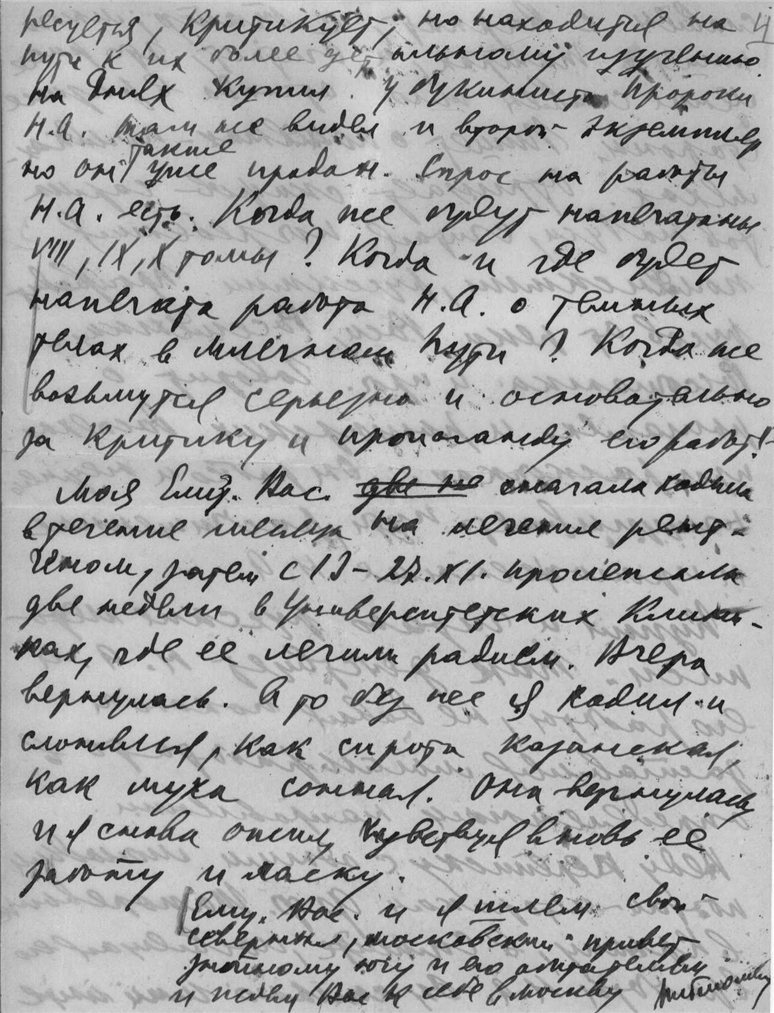 ресуется, критикует, но находится на 4
пути к их более детальному изучению.
На днях купил у букиниста Пророки
Н.А. там же видел и второй экземпляр
но он также уже продан. Спрос на работы
Н.А. есть. Когда же будут напечатаны
VIII, IX, X томы? Когда и где будет
напечата работа Н.А. о темных
телах в млечном Пути? Когда же
возьмутся серьезно и основательно
за критику и пропаганду его работ!
Моя Елиз. Вас. две не сначала ходила
в течение месяца на лечение рент-
геном, затем с 13-27.XI. пролежала
две недели в Университетских Клини-
ках, где ее лечили радием. Вчера
вернулась. А то без нее я ходил и
слонялся, как сирота казанская,
как муха сонная. Она вернулась
и я снова ожил, чувствуя вновь ее
заботу и ласку.
Елиз. Вас. и я шлем свой
северный, московский привет
знойному югу и его обитателям
и ждем Вас к себе в Москву